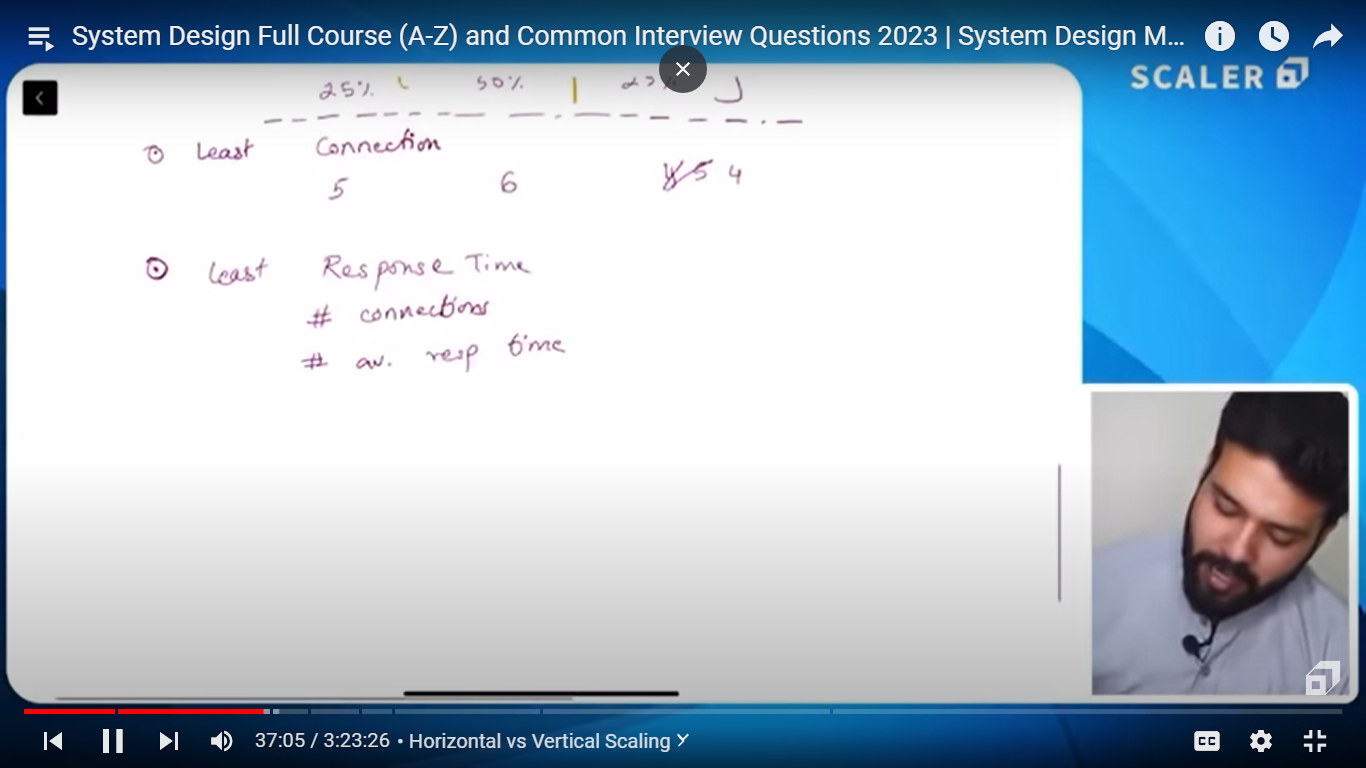 System Design Full Course (A-Z) and Common Interview Questions 2023 | System Design M...
SCALER
25% 50%
Least Connection
5 6 5 4
Least Response Time
# connections
# av. resp time
37:05 / 3:23:26 • Horizontal vs Vertical Scaling
CC